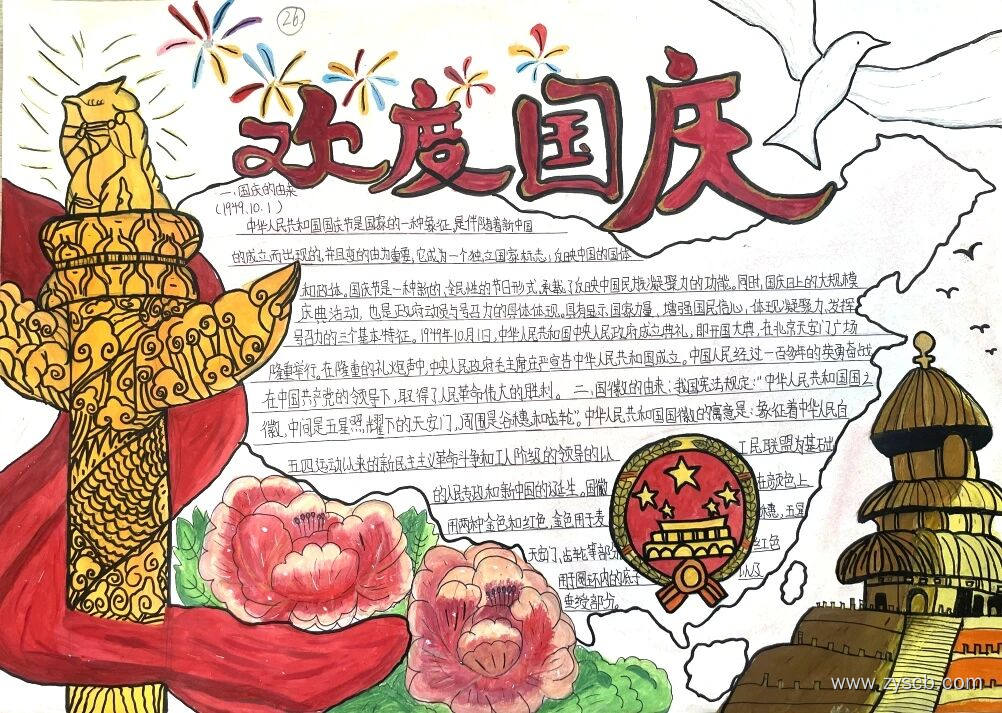 26
欢度国庆
一、国庆的由来
(1949.10.1)
中华人民共和国国庆节是国家的一种象征,是伴随着新中国
的成立而出现的,并且变的由为重要,它成为一个独立国家标志,反映中国的国体
和政体。国庆节是一种新的、全民性的节日形式,承载了反映中国民族凝聚力的功能。同时,国庆日上的大规模
庆典活动,也是政府动员与号召力的具体体现。具有显示国家力量、增强国民信心,体现凝聚力,发挥
号召力的三个基本特征。1949年10月1日,中华人民共和国中央人民政府成立典礼,即开国大典,在北京天安门广场
隆重举行。在隆重的礼炮声中,中央人民政府毛主席庄严宣告中华人民共和国成立。中国人民经过一百多年的英勇奋战
在中国共产党的领导下,取得了人民革命伟大的胜利。二、国徽的由来:我国宪法规定:“中华人民共和国国之
徽,中间是五星照耀下的天安门,周围是谷穗和齿轮”。中华人民共和国国徽的寓意是:象征着中华人民自
五四运动以来的新民主主义革命斗争和工人阶级的领导的以 工民联盟为基础
的人民专政和新中国的诞生。国徽 在颜色上
用两种金色和红色,金色用于麦 穗,五星
天安门,齿轮等部分 红色
用于圆环内的底子 以及
垂绶部分。
www.zyscb.com